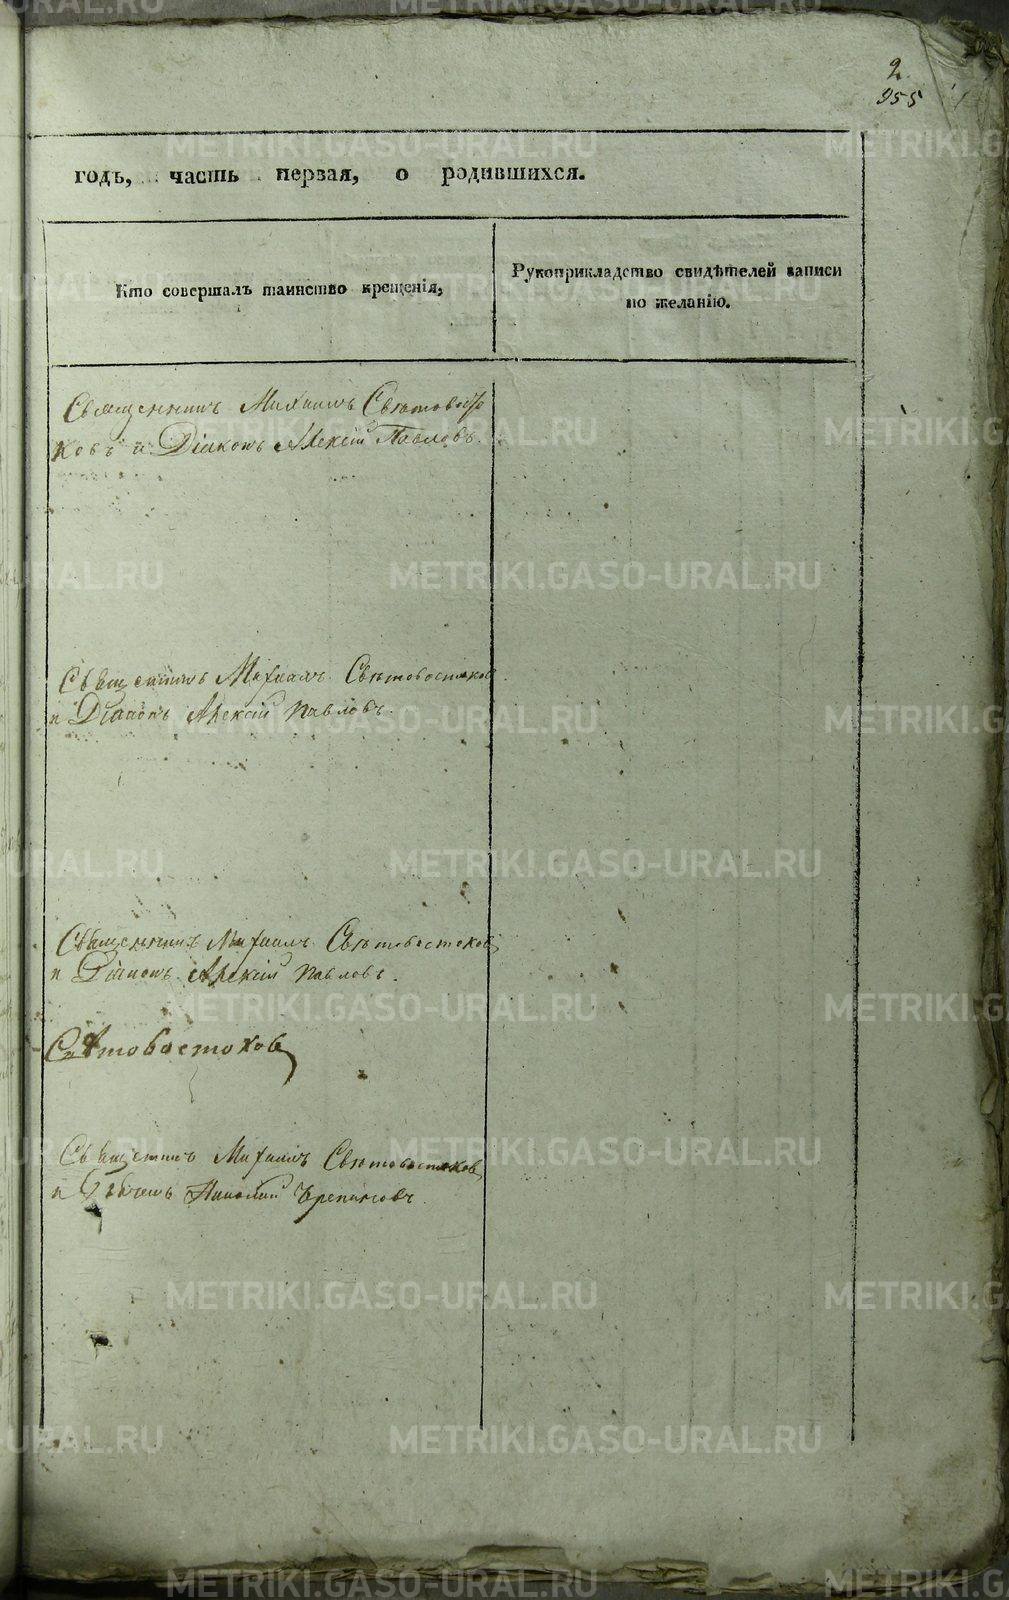 2
955
годъ, часть первая, о родившихся.
Кто совершалъ таинство крещенія,
Рукоприкладство свидѣтелей записи
по желанію.
Священникъ Михаилъ Свѣтовосто
ковъ и Діаконъ Алексій Павловъ.
Священникъ Михаилъ Свѣтовостоковъ
и Діаконъ Алексій Павловъ.
Священникъ Михаилъ Свѣтовостоковъ
и Діаконъ Алексій Павловъ.
Свѣтовостоковъ
Священникъ Михаилъ Свѣтовостоковъ
и Николай
METRIKI.GASO-URAL.RU